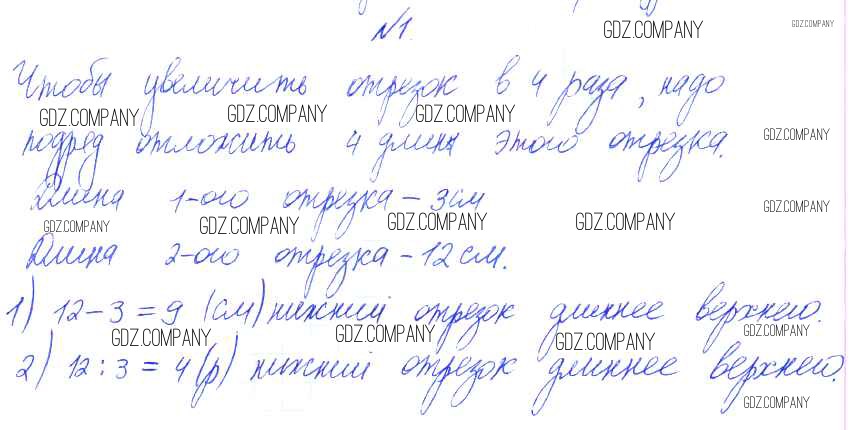 №1.
GDZ.COMPANY GDZ.COMPANY
Чтобы увеличить отрезок в 4 раза, надо
GDZ.COMPANY GDZ.COMPANY GDZ.COMPANY
подряд отложить 4 длины этого отрезка.
GDZ.COMPANY
Длина 1-ого отрезка – 3см
GDZ.COMPANY
GDZ.COMPANY GDZ.COMPANY GDZ.COMPANY GDZ.COMPANY
Длина 2-ого отрезка – 12 см.
1) 12 – 3 = 9 (см) нижний отрезок длиннее верхнего.
GDZ.COMPANY GDZ.COMPANY GDZ.COMPANY GDZ.COMPANY
2) 12 : 3 = 4 (р) нижний отрезок длиннее верхнего.
GDZ.COMPANY